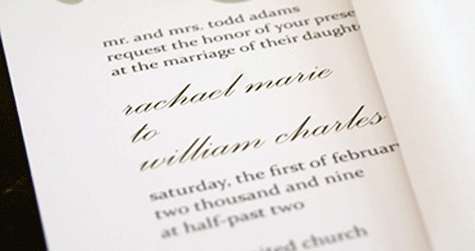 mr. and mrs. todd adams
request the honor of your prese
at the marriage of their daughte
rachael marie
to
william charles
saturday, the first of februar
two thousand and nine
at half-past two
ited church